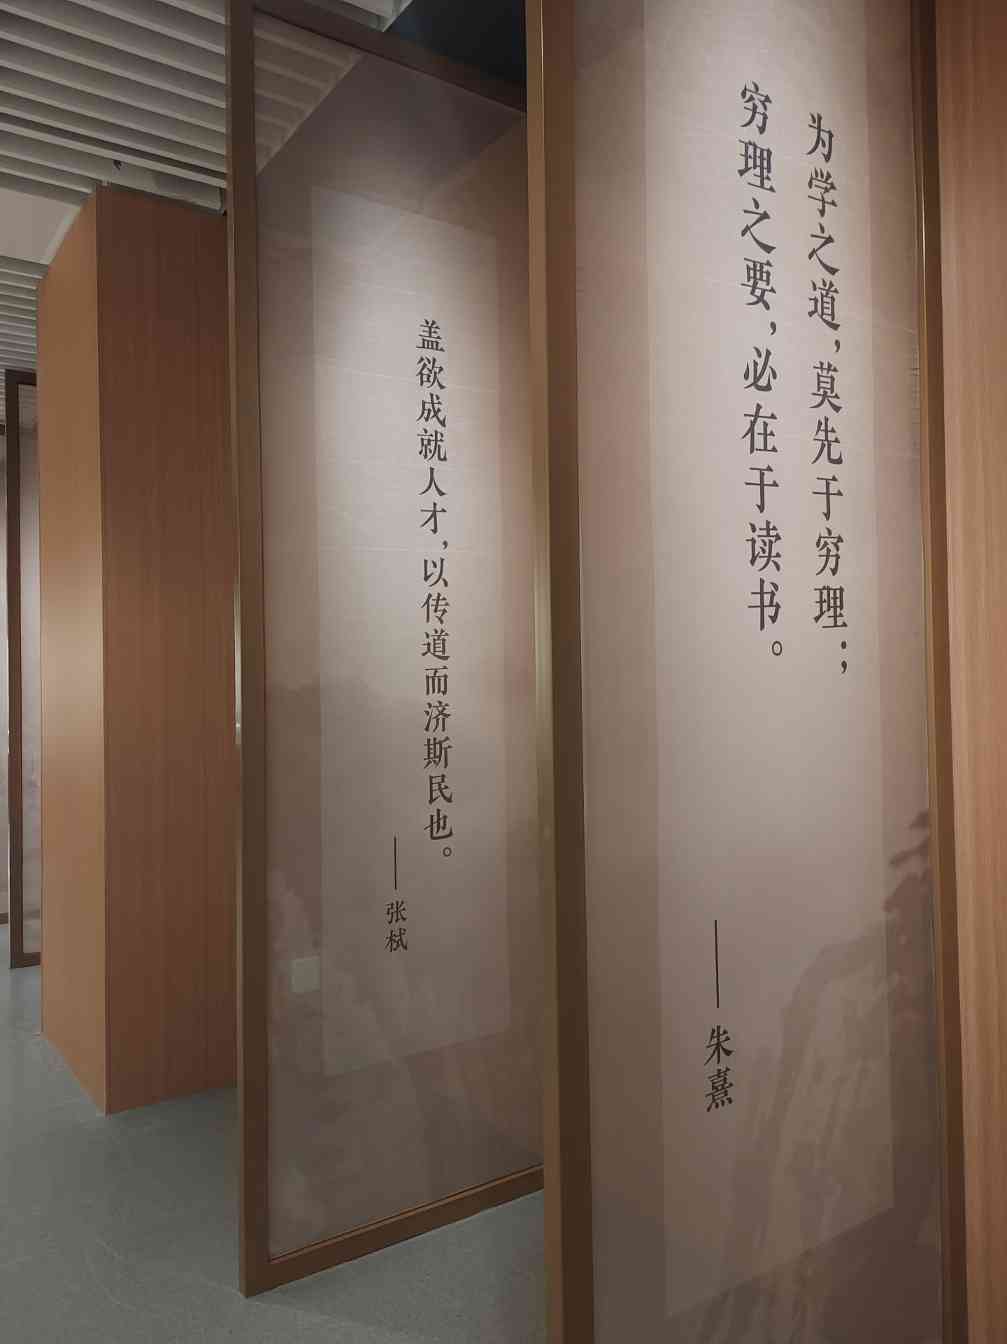 为学之道，莫先于穷理；
穷理之要，必在于读书。
——朱熹
盖欲成就人才，以传道而济斯民也。
——张栻